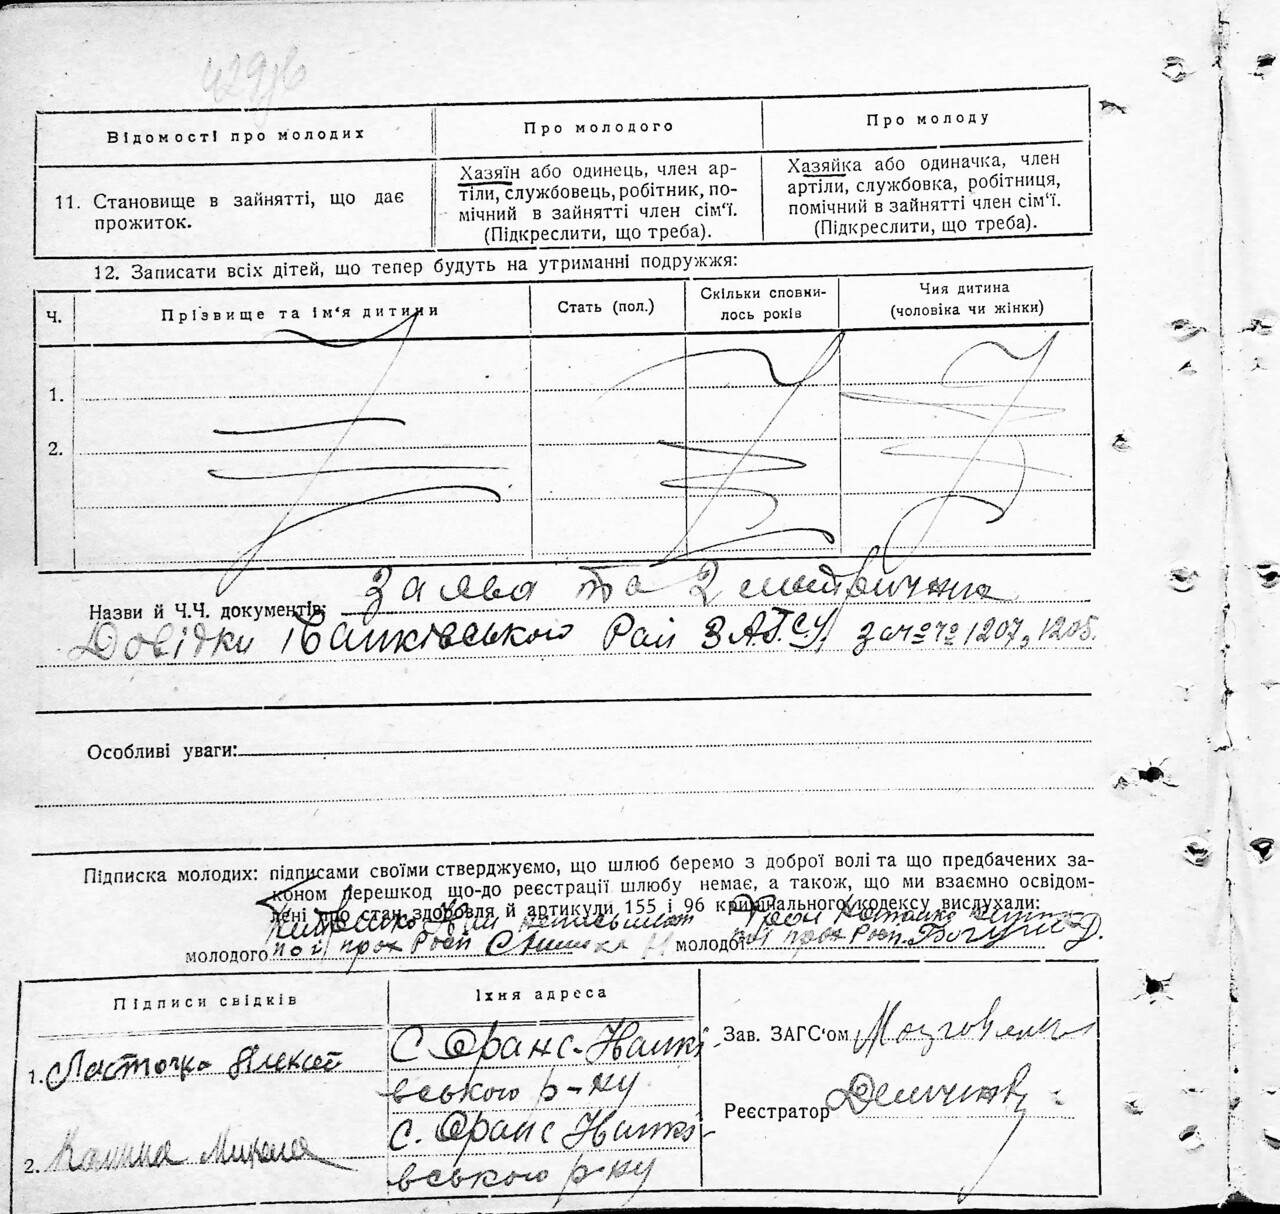 Відомості про молодих
Про молодого
Про молоду
11. Становище в зайнятті, що дає
прожиток.
Хазяїн або одинець, член ар-
тіли, службовець, робітник, по-
мічний в зайнятті член сім'ї.
(Підкреслити, що треба).
Хазяйка або одиначка, член
артіли, службовка, робітниця,
помічний в зайнятті член сім'ї.
(Підкреслити, що треба).
12. Записати всіх дітей, що тепер будуть на утриманні подружжя:
Ч.
Прізвище та ім'я дитини
Стать (пол.)
Скільки сповни-
лось років
Чия дитина
(чоловіка чи жінки)
1.
2.
Назви й Ч.Ч. документів: Заява та 2
Довідки Рай ЗАГСу за №№ 1207, 1205.
Особливі уваги:
Підписка молодих: підписами своїми стверджуємо, що шлюб беремо з доброї волі та що предбачених за-
коном перешкод що-до реєстрації шлюбу немає, а також, що ми взаємно освідом-
лені про стан здоровля й артикули 155 і 96 кримінального кодексу вислухали:
молодого
молодої
Підписи свідків
Їхня адреса
1. Ласточка Алексей
С Йранс-
вського р-ну
2. Калина Микола
с.
вського р-ну
Зав. ЗАГС'ом
Реєстратор